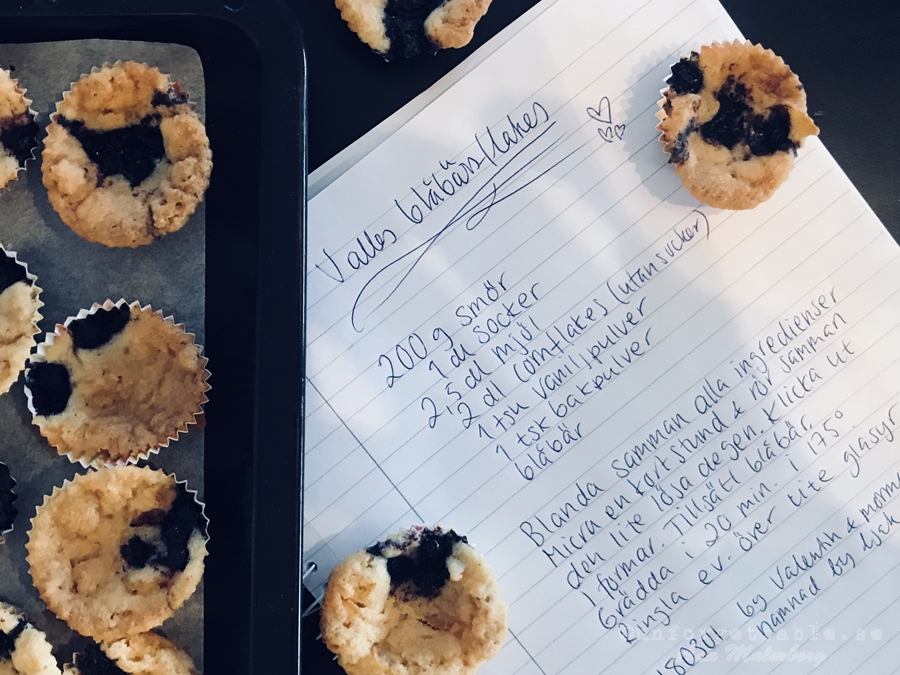 Valles blåbärs(l)akes
200 g smör
1 dl socker
2,5 dl mjöl
2 dl cornflakes (utan sucker)
1 tsk vaniljpulver
1 tsk bakpulver
blåbär
Blanda samman alla ingredienser
Micra en kort stund & rör samman
den lite lösa degen. Klicka ut
i formar. Tillsätt blåbär.
Grädda i 20 min. i 175°
Ringla ev. över lite glasyr
180304 by Valentin &
namnad by